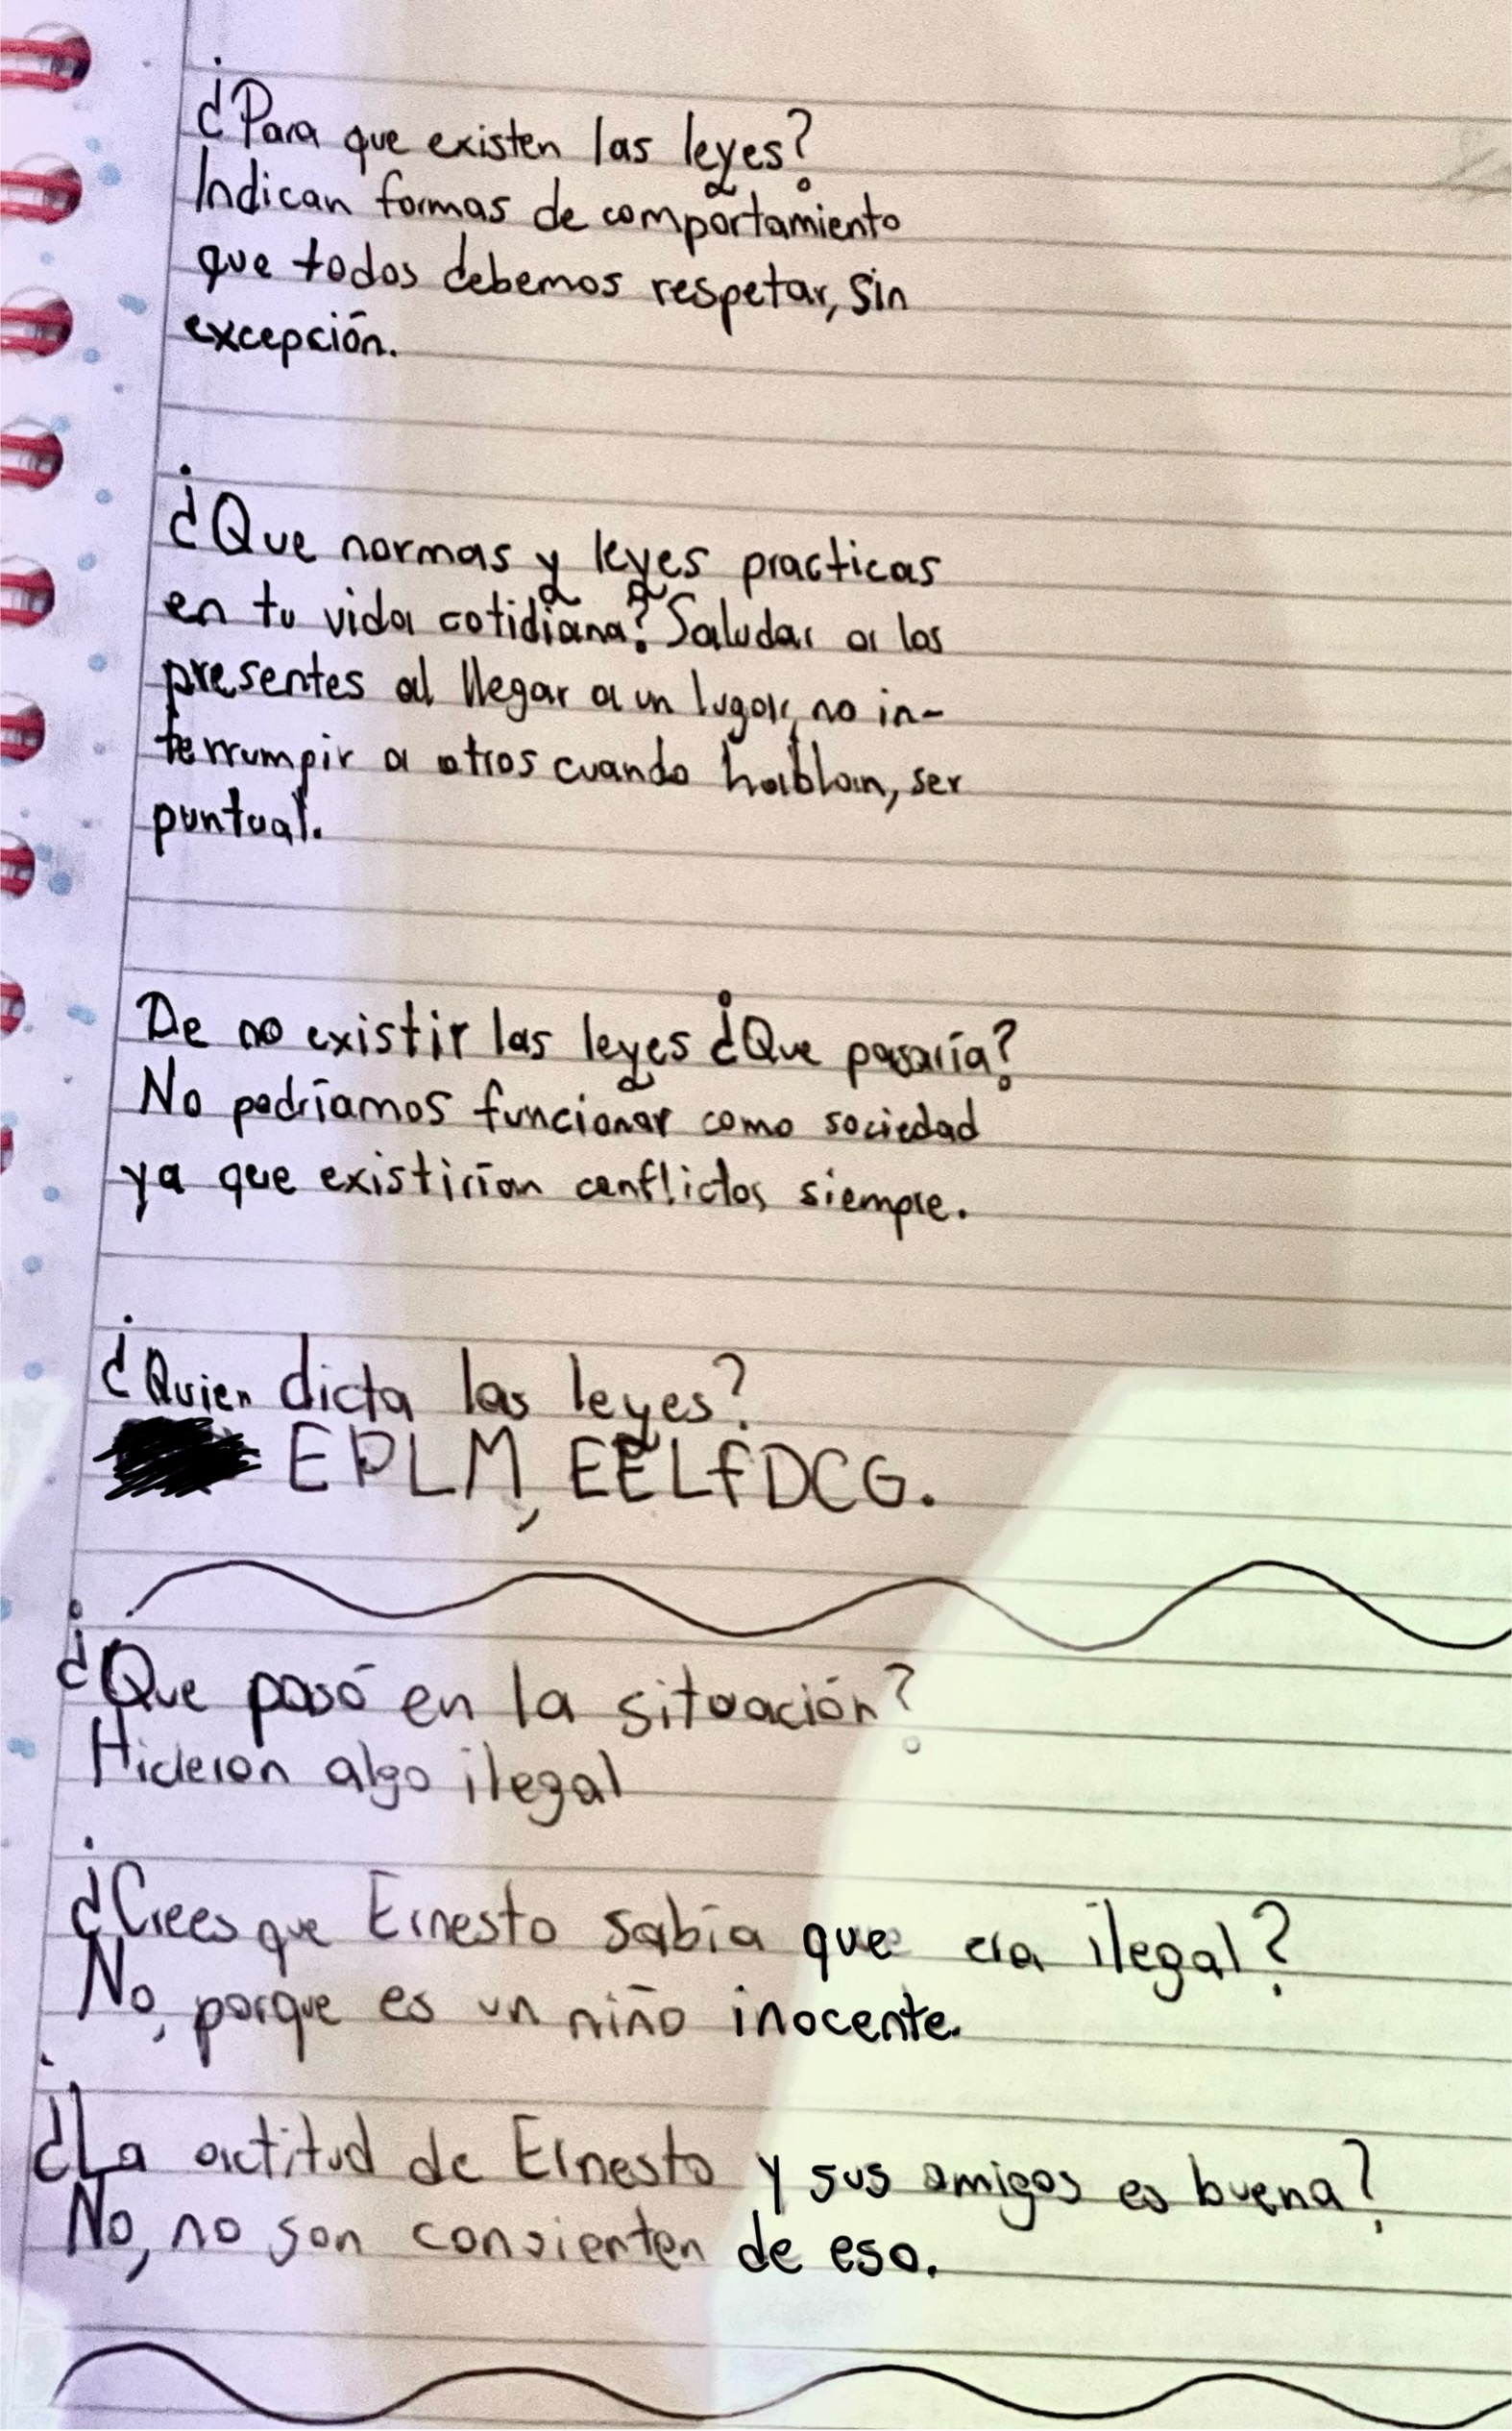 ¿Para que existen las leyes?
Indican formas de comportamiento
que todos debemos respetar, sin
excepción.
¿Que normas y leyes practicas
en tu vida cotidiana? Saludar a los
presentes al llegar a un lugar, no in-
terrumpir a otros cuando hablan, ser
puntual.
De no existir las leyes ¿Que pasaría?
No podríamos funcionar como sociedad
ya que existirían conflictos siempre.
¿Quien dicta las leyes?
EPLM, EELFDCG.
¿Que pasó en la situación?
Hicieron algo ilegal
¿Crees que Ernesto sabía que era ilegal?
No, porque es un niño inocente.
¿La actitud de Ernesto y sus amigos es buena?
No, no son consienten de eso.